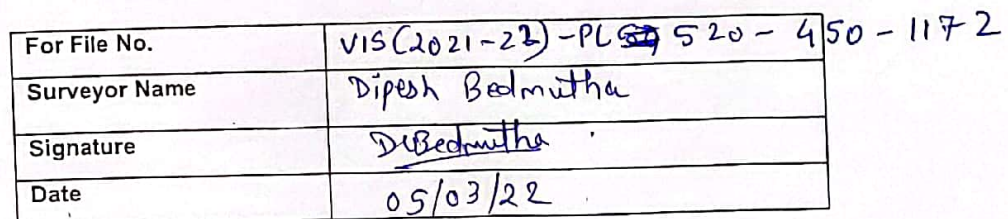 For File No. VIS(2021-22)-PL 520-450-1172
Surveyor Name Dipesh Bedmutha
Signature DBedmutha
Date 05/03/22